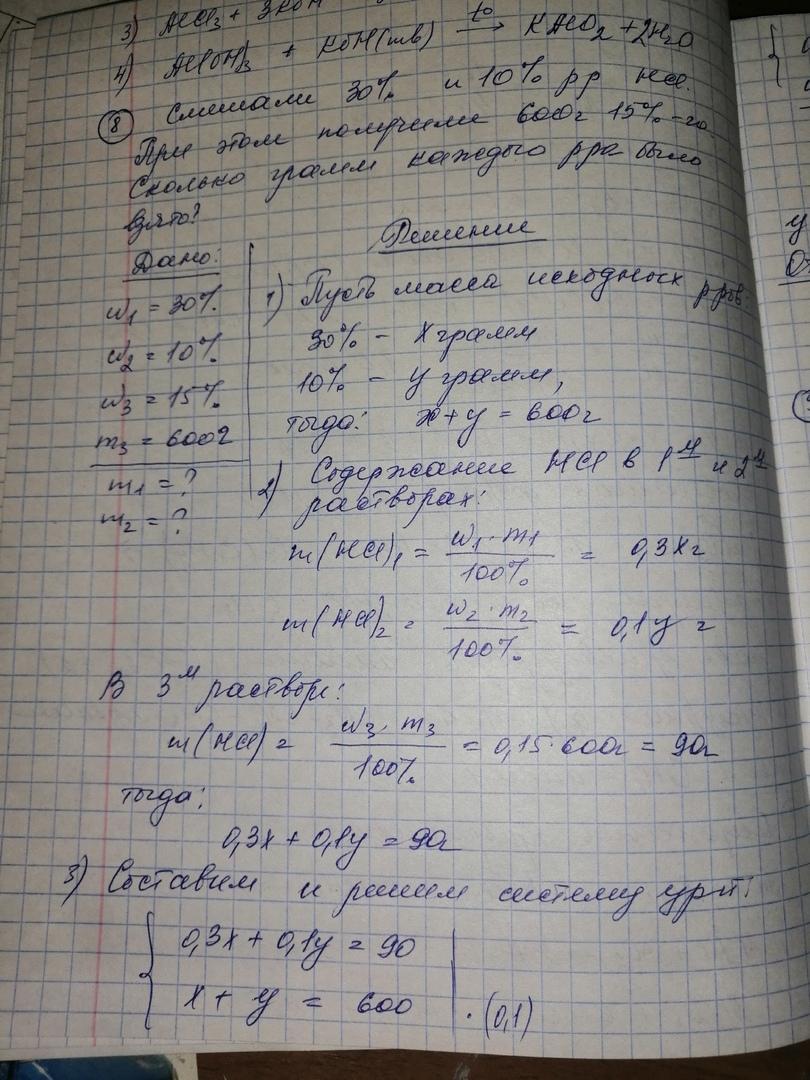 3) AlCl3 + 3KOH
4) Al(OH)3 + KOH(тв) t° → KAlO2 + 2H2O
8 Смешали 30% и 10% рр HCl.
При этом получили 600г 15%-го
Сколько грамм каждого рра было
взято?
Решение
Дано:
ω1 = 30%
ω2 = 10%
ω3 = 15%
m3 = 600г
m1 = ?
m2 = ?
1) Пусть масса исходных рров:
30% - x грамм
10% - y грамм,
тогда: x + y = 600г
2) Содержание HCl в 1й и 2й
растворах:
m(HCl)1 = ω1 · m1 / 100% = 0,3x г
m(HCl)2 = ω2 · m2 / 100% = 0,1y г
В 3м растворе:
m(HCl) = ω3 · m3 / 100% = 0,15·600г = 90г
тогда:
0,3x + 0,1y = 90г
3) Составим и решим систему ур-й:
0,3x + 0,1y = 90
x + y = 600 | · (0,1)